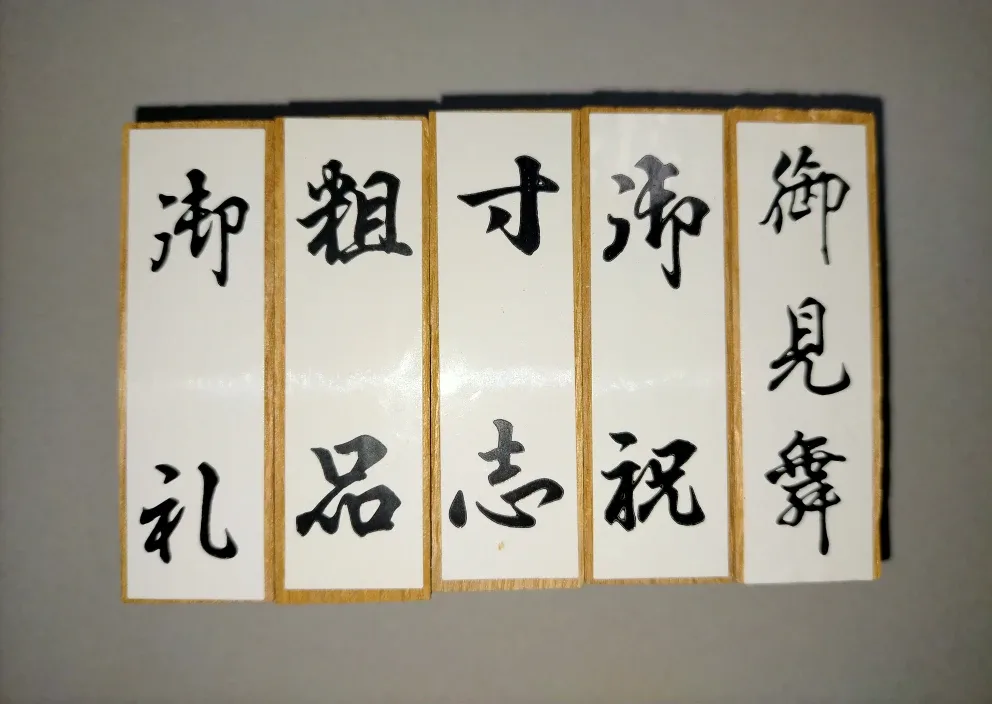 御見舞
御祝
寸志
粗品
御礼